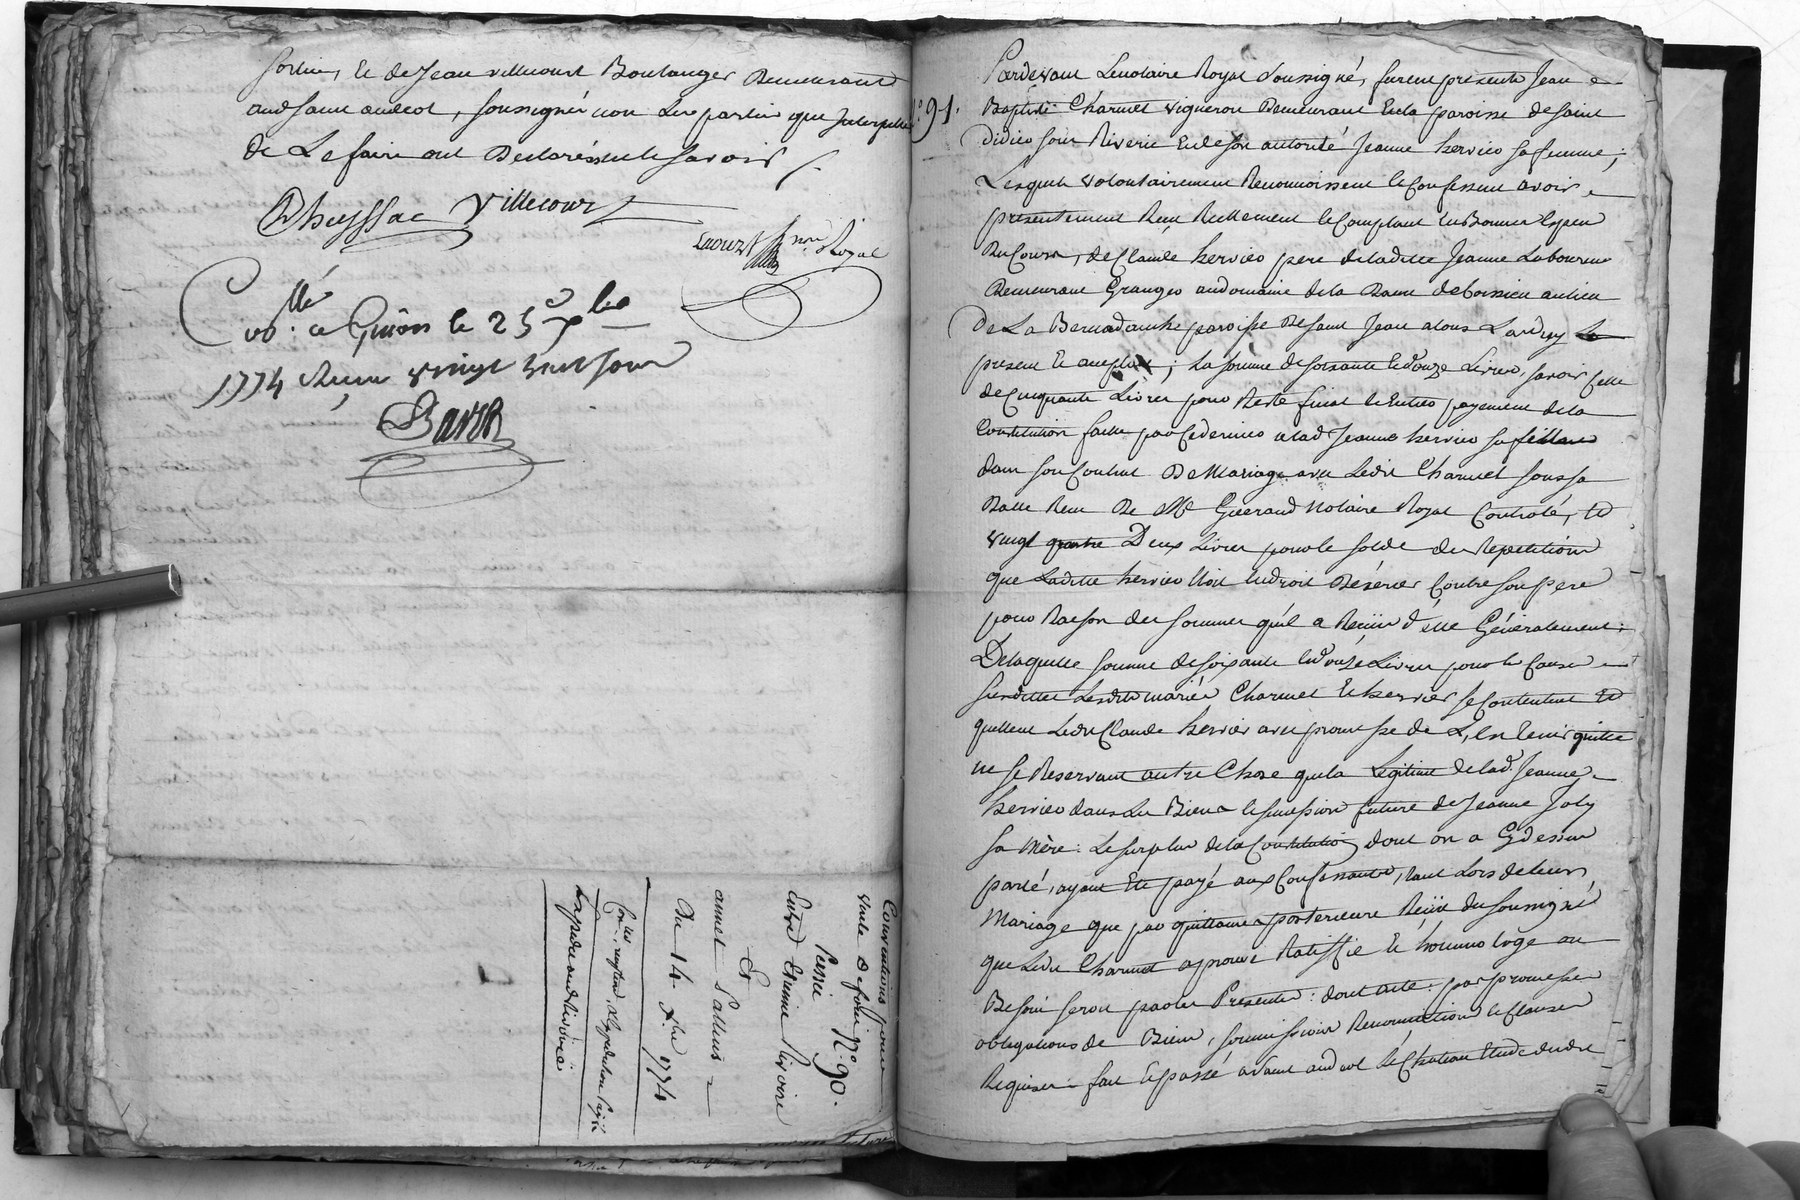 fortier, et de Jean villecourt Boulanger Demeurant
aud saint andeol, soussignés non les parties que Interpellées
de Le faire ont Declarés ne le savoir
Dheyssac Villecourt
nore Royal
Collé a Givors le 25 xbre
1774 Recu vingt huit sous
Baver
Conventions pour
vente de fond N.o 90.
Passée
Entre Etienne Rivoire
Et
annet
Du 14 xbre 1774
N.o 91.
Pardevant Le notaire Royal soussigné, furent presents Jean
Baptiste Charmet vigneron Demeurant En la paroisse de Saint
Didier sous Riverie Et de son autorité Jeanne hervier sa femme;
Lesquels volontairement Reconnoissent et Confessent avoir
presentement Recu Reellement et Comptant En Bonnes Especes
Du Cours, de Claude hervier pere de laditte Jeanne Laboureur
Demeurant Granger au domaine de la Dame de Boissieu au lieu
De La Bernadanche paroisse De saint Jean a tous
present et acceptant; La somme de soixante et douze Livres, savoir Celle
de Cinquante Livres pour Reste final et Entier payement de la
Constitution faitte par Ce dernier a lad Jeanne hervier sa fille
dans son Contrat De Mariage avec Ledit Charmet sous sa
Datte Recu De Me Gueraud Notaire Royal Controlé, Et
vingt quatre Deux Livres pour le solde des Repetitions
que Laditte hervier Etoit En droit D'Exercer Contre son pere
pour Raison des sommes qu'il a Recues d'elle Généralement;
De laquelle somme de soixante et douze Livres pour les Causes
susdittes Lesdits mariés Charmet Et hervier se Contentent Et
quittent Ledit Claude hervier avec promesse de L'en tenir quitte
ne se Reservant autre Chose que la Legitime de lad. Jeanne
hervier dans Les Biens et succession future de Jeanne Joly
sa Mère: Le surplus de la Constitution dont on a Cy dessus
parlé, ayant Eté payé aux Confessants, tant Lors de leur
Mariage que par quittance posterieure Recüe du soussigné
que Ledit Charmet aprouve Ratiffie Et hommologe au
Besoin seroit par les Presentes: dont acte: par promesses
obligations de Biens, soumissions Renonciations et Clauses
Requises: fait Et passé a Saint andeol Le Chateau Etude dudit